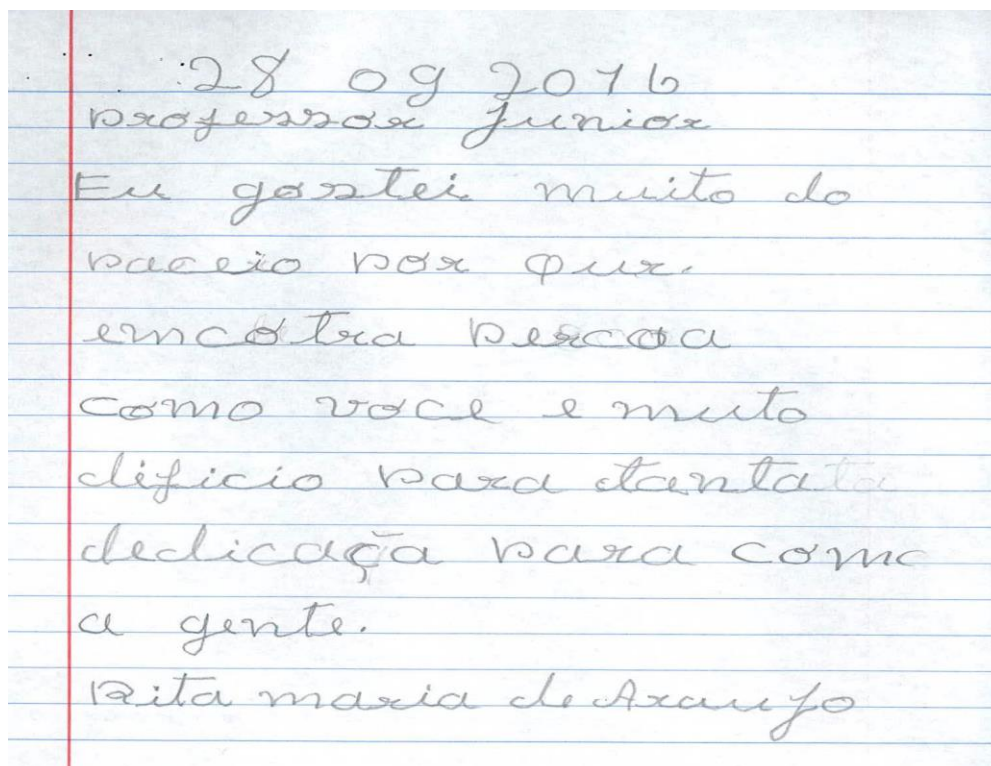 28 09 2016
professor Junior
Eu gostei muito do
paceio por qur.
emcotra percoa
como voce e muito
dificio para tanta ta
dedicaçã para como
a gente.
Rita maria de Araujo